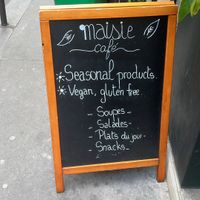 maisie
café
*Seasonal products.
*Vegan, gluten free.
- Soupes
- Salades
- Plats du jour
- Snacks